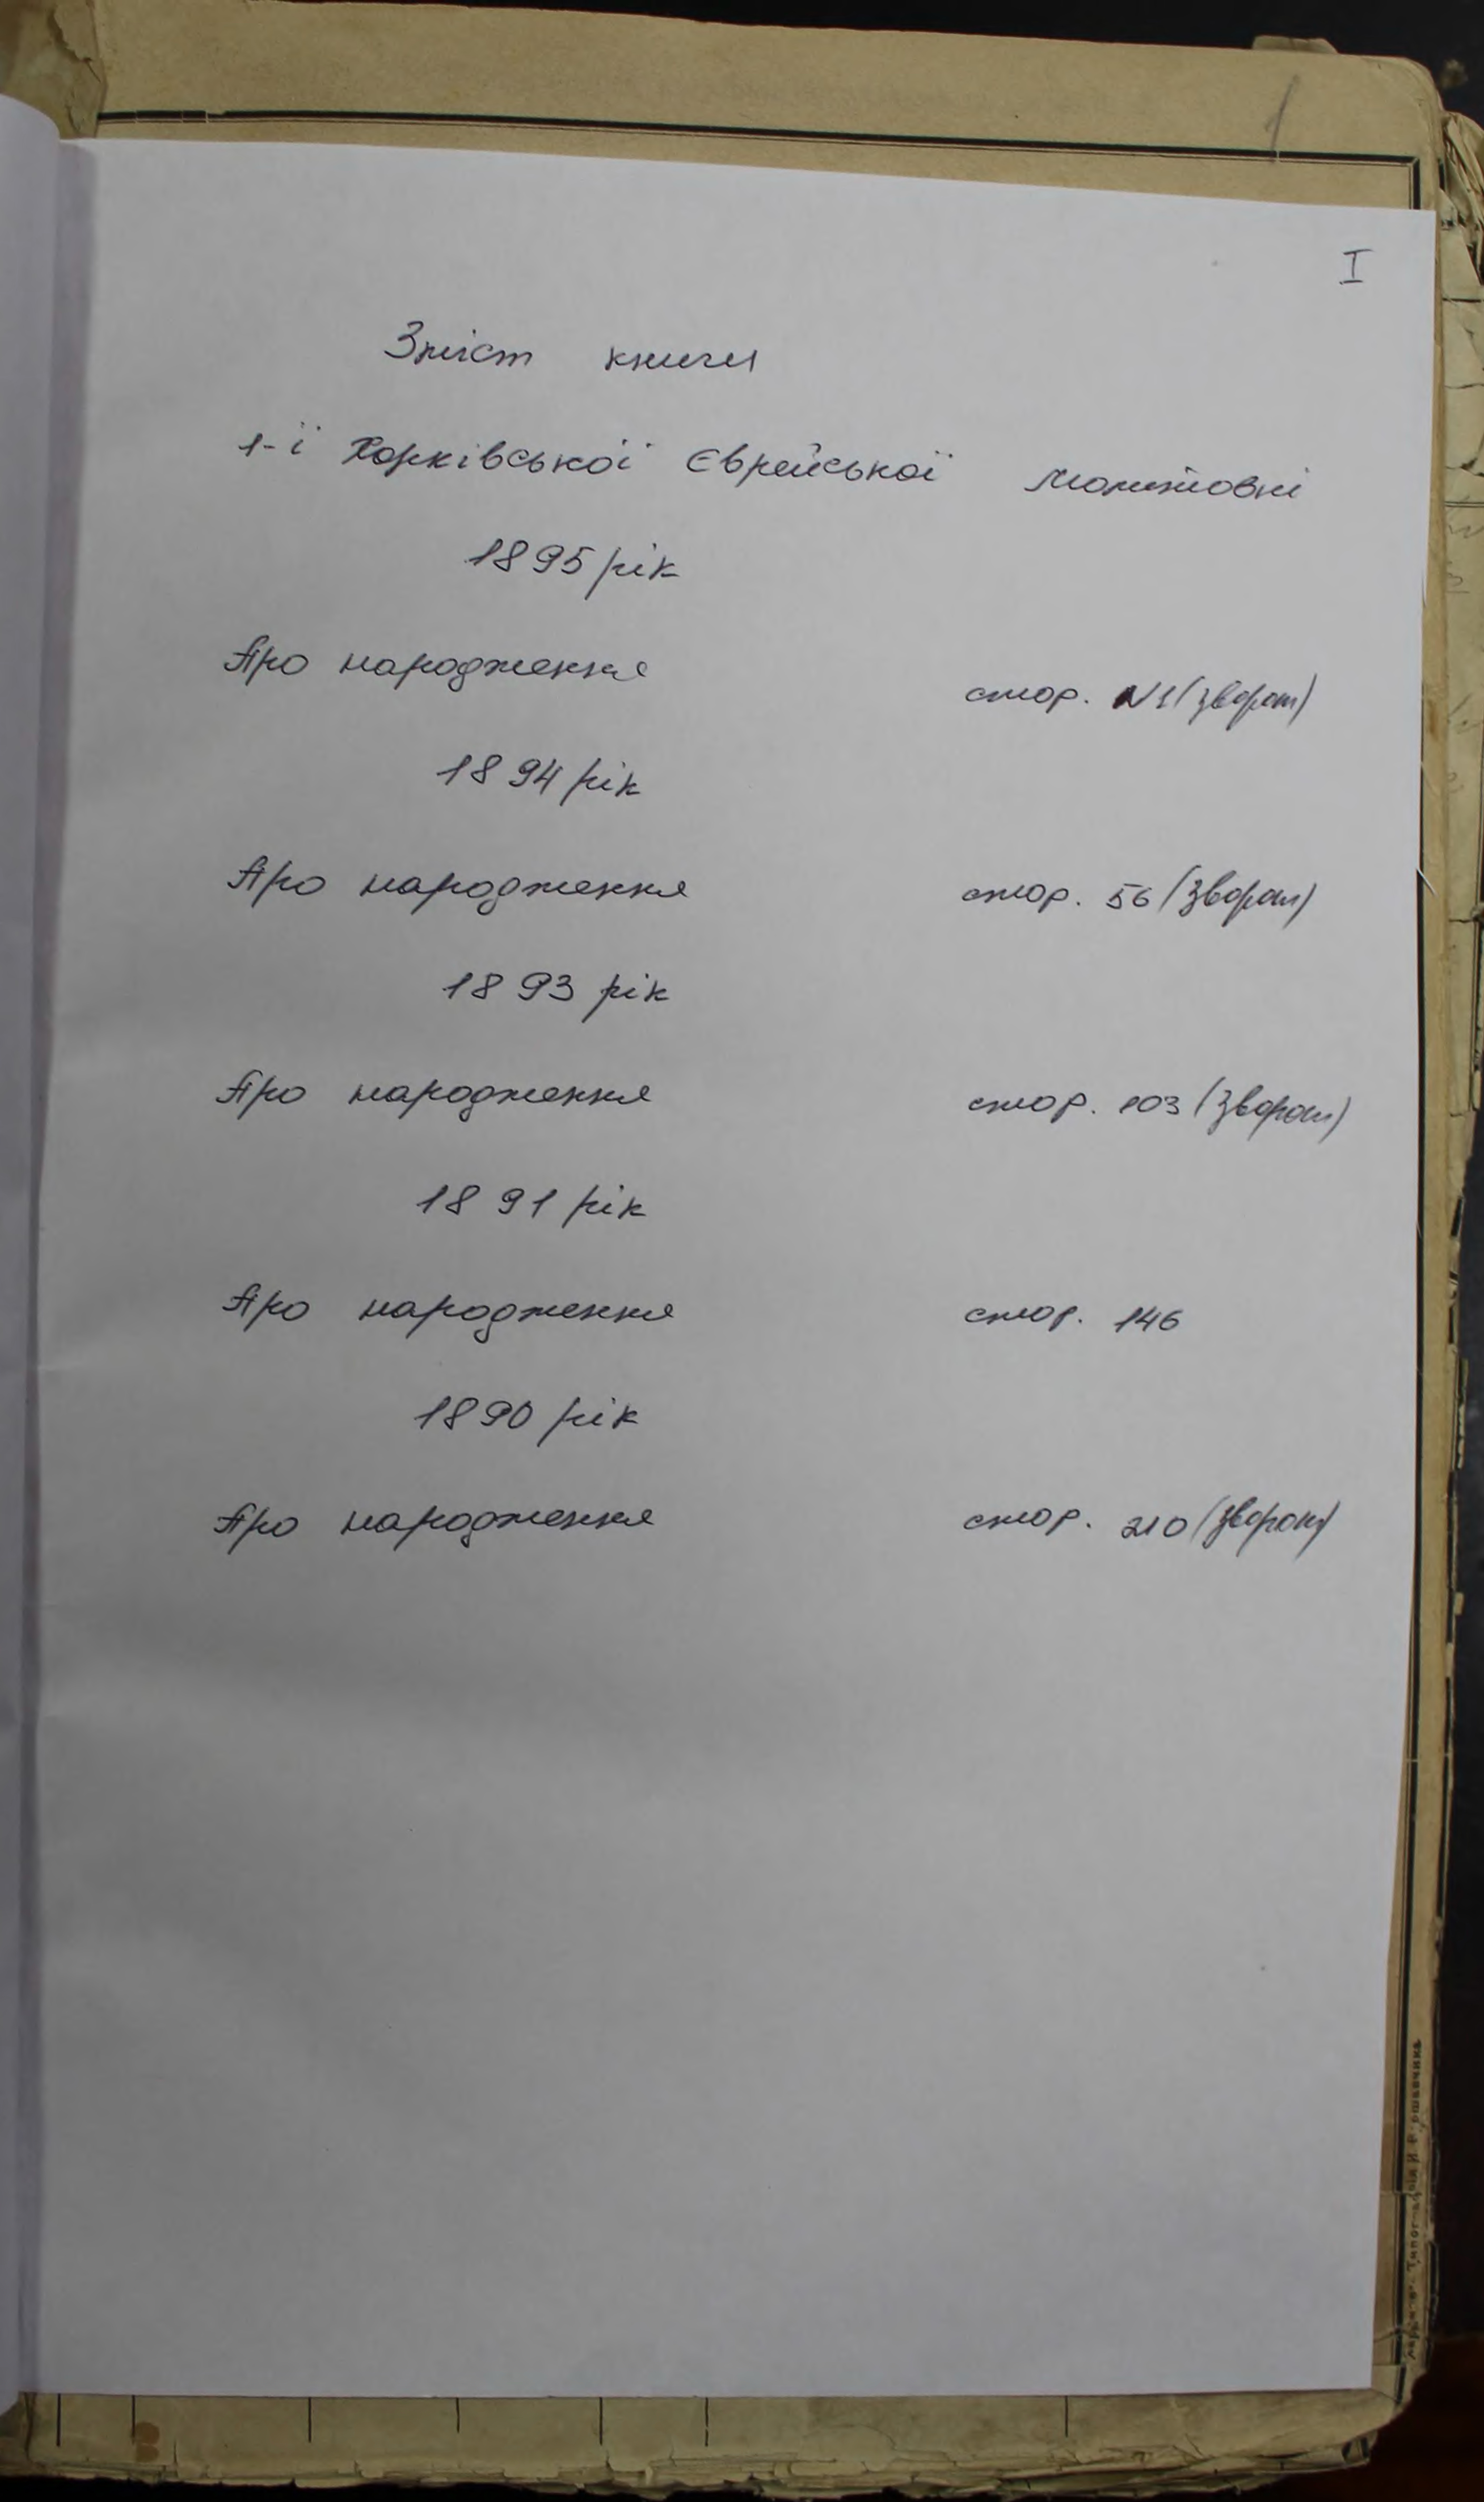 1
I
Зміст книги
1-ї Харківської Єврейської молитовні
1895 рік
Про народження стор. N1 (зворот)
1894 рік
Про народження стор. 56 (зворот)
1893 рік
Про народження стор. 103 (зворот)
1891 рік
Про народження стор. 146
1890 рік
Про народження стор. 210 (зворот)